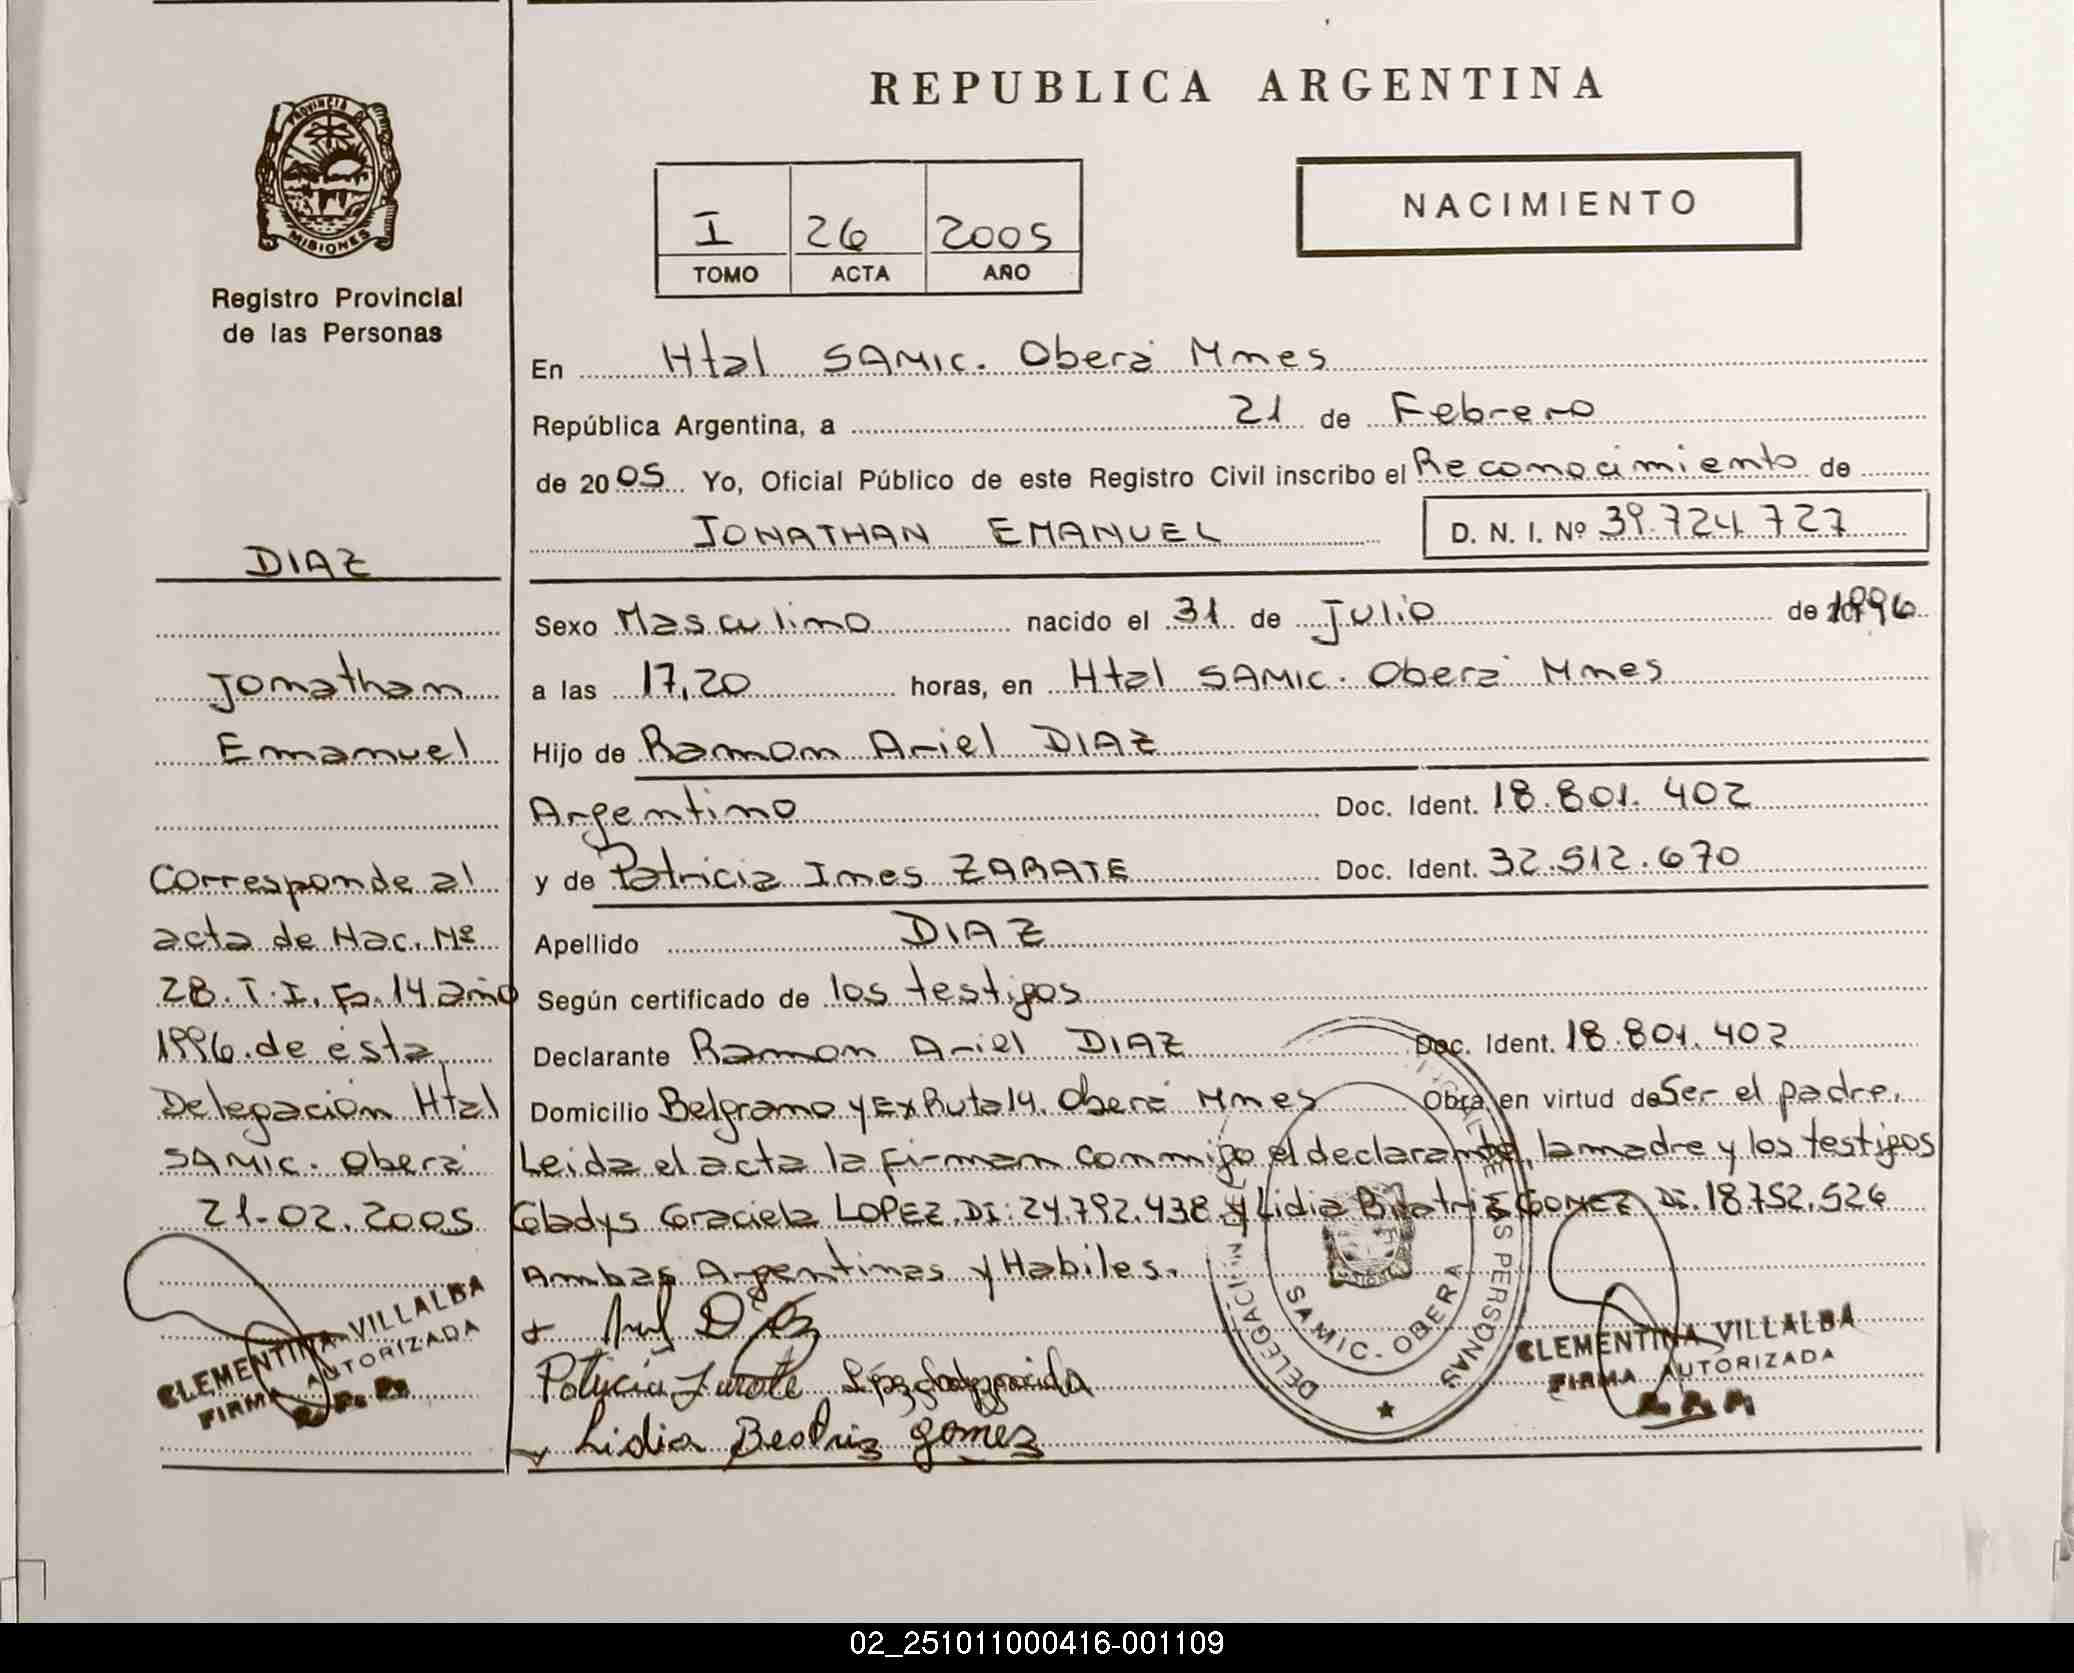 REPUBLICA ARGENTINA
PROVINCIA DE
MISIONES
Registro Provincial
de las Personas
I 26 2005
TOMO ACTA AÑO
NACIMIENTO
En Htal SAMIC. Oberá Mnes
República Argentina, a 21 de Febrero
de 2005 Yo, Oficial Público de este Registro Civil inscribo el Reconocimiento de
JONATHAN EMANUEL D. N. I. Nº 39.724.727
Sexo Masculino nacido el 31 de Julio de 1996
a las 17,20 horas, en Htal SAMIC. Oberá Mnes
Hijo de Ramon Ariel DIAZ
Argentino Doc. Ident. 18.801.402
y de Patricia Ines ZARATE Doc. Ident. 32.512.670
Apellido DIAZ
Según certificado de los testigos
Declarante Ramon Ariel DIAZ Doc. Ident. 18.801.402
Domicilio Belgrano y Ex Ruta 14. Oberá Mnes Obra en virtud de Ser el padre.
Leida el acta la firman conmigo el declarante, la madre y los testigos
Gladys Graciela LOPEZ, DI: 24.792.438 y Lidia Beatriz GOMEZ DI. 18.752.526
Ambas Argentinas y Habiles.
Diaz
Patricia Zarate
Lidia Beatriz gomez
DIAZ
Jonathan
Emanuel
Corresponde al
acta de Nac. Nº
28. T. I. Fo. 14 año
1996. de ésta
Delegación Htal
SAMIC. Oberá
21-02.2005
CLEMENTINA VILLALBA
FIRMA AUTORIZADA
R. P. P.
SAMIC. OBERA
CLEMENTINA VILLALBA
FIRMA AUTORIZADA
R. P. P.
02_251011000416-001109